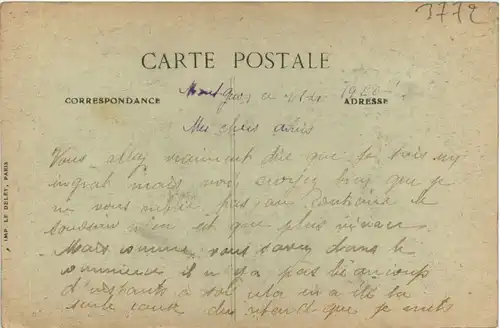 3772
CARTE POSTALE
CORRESPONDANCE
ADRESSE
Mes chers amis
Vous allez vraiment dire que je suis un
ingrat mais non croyez bien que je
ne vous oublie pas au contraire le
souvenir n'en est que plus vivace
Mais comme vous savez dans le
commerce il n'y a pas beaucoup
d'instants à soi cela en a été la
seule cause du retard que je mets
IMP. LE DELEY, PARIS